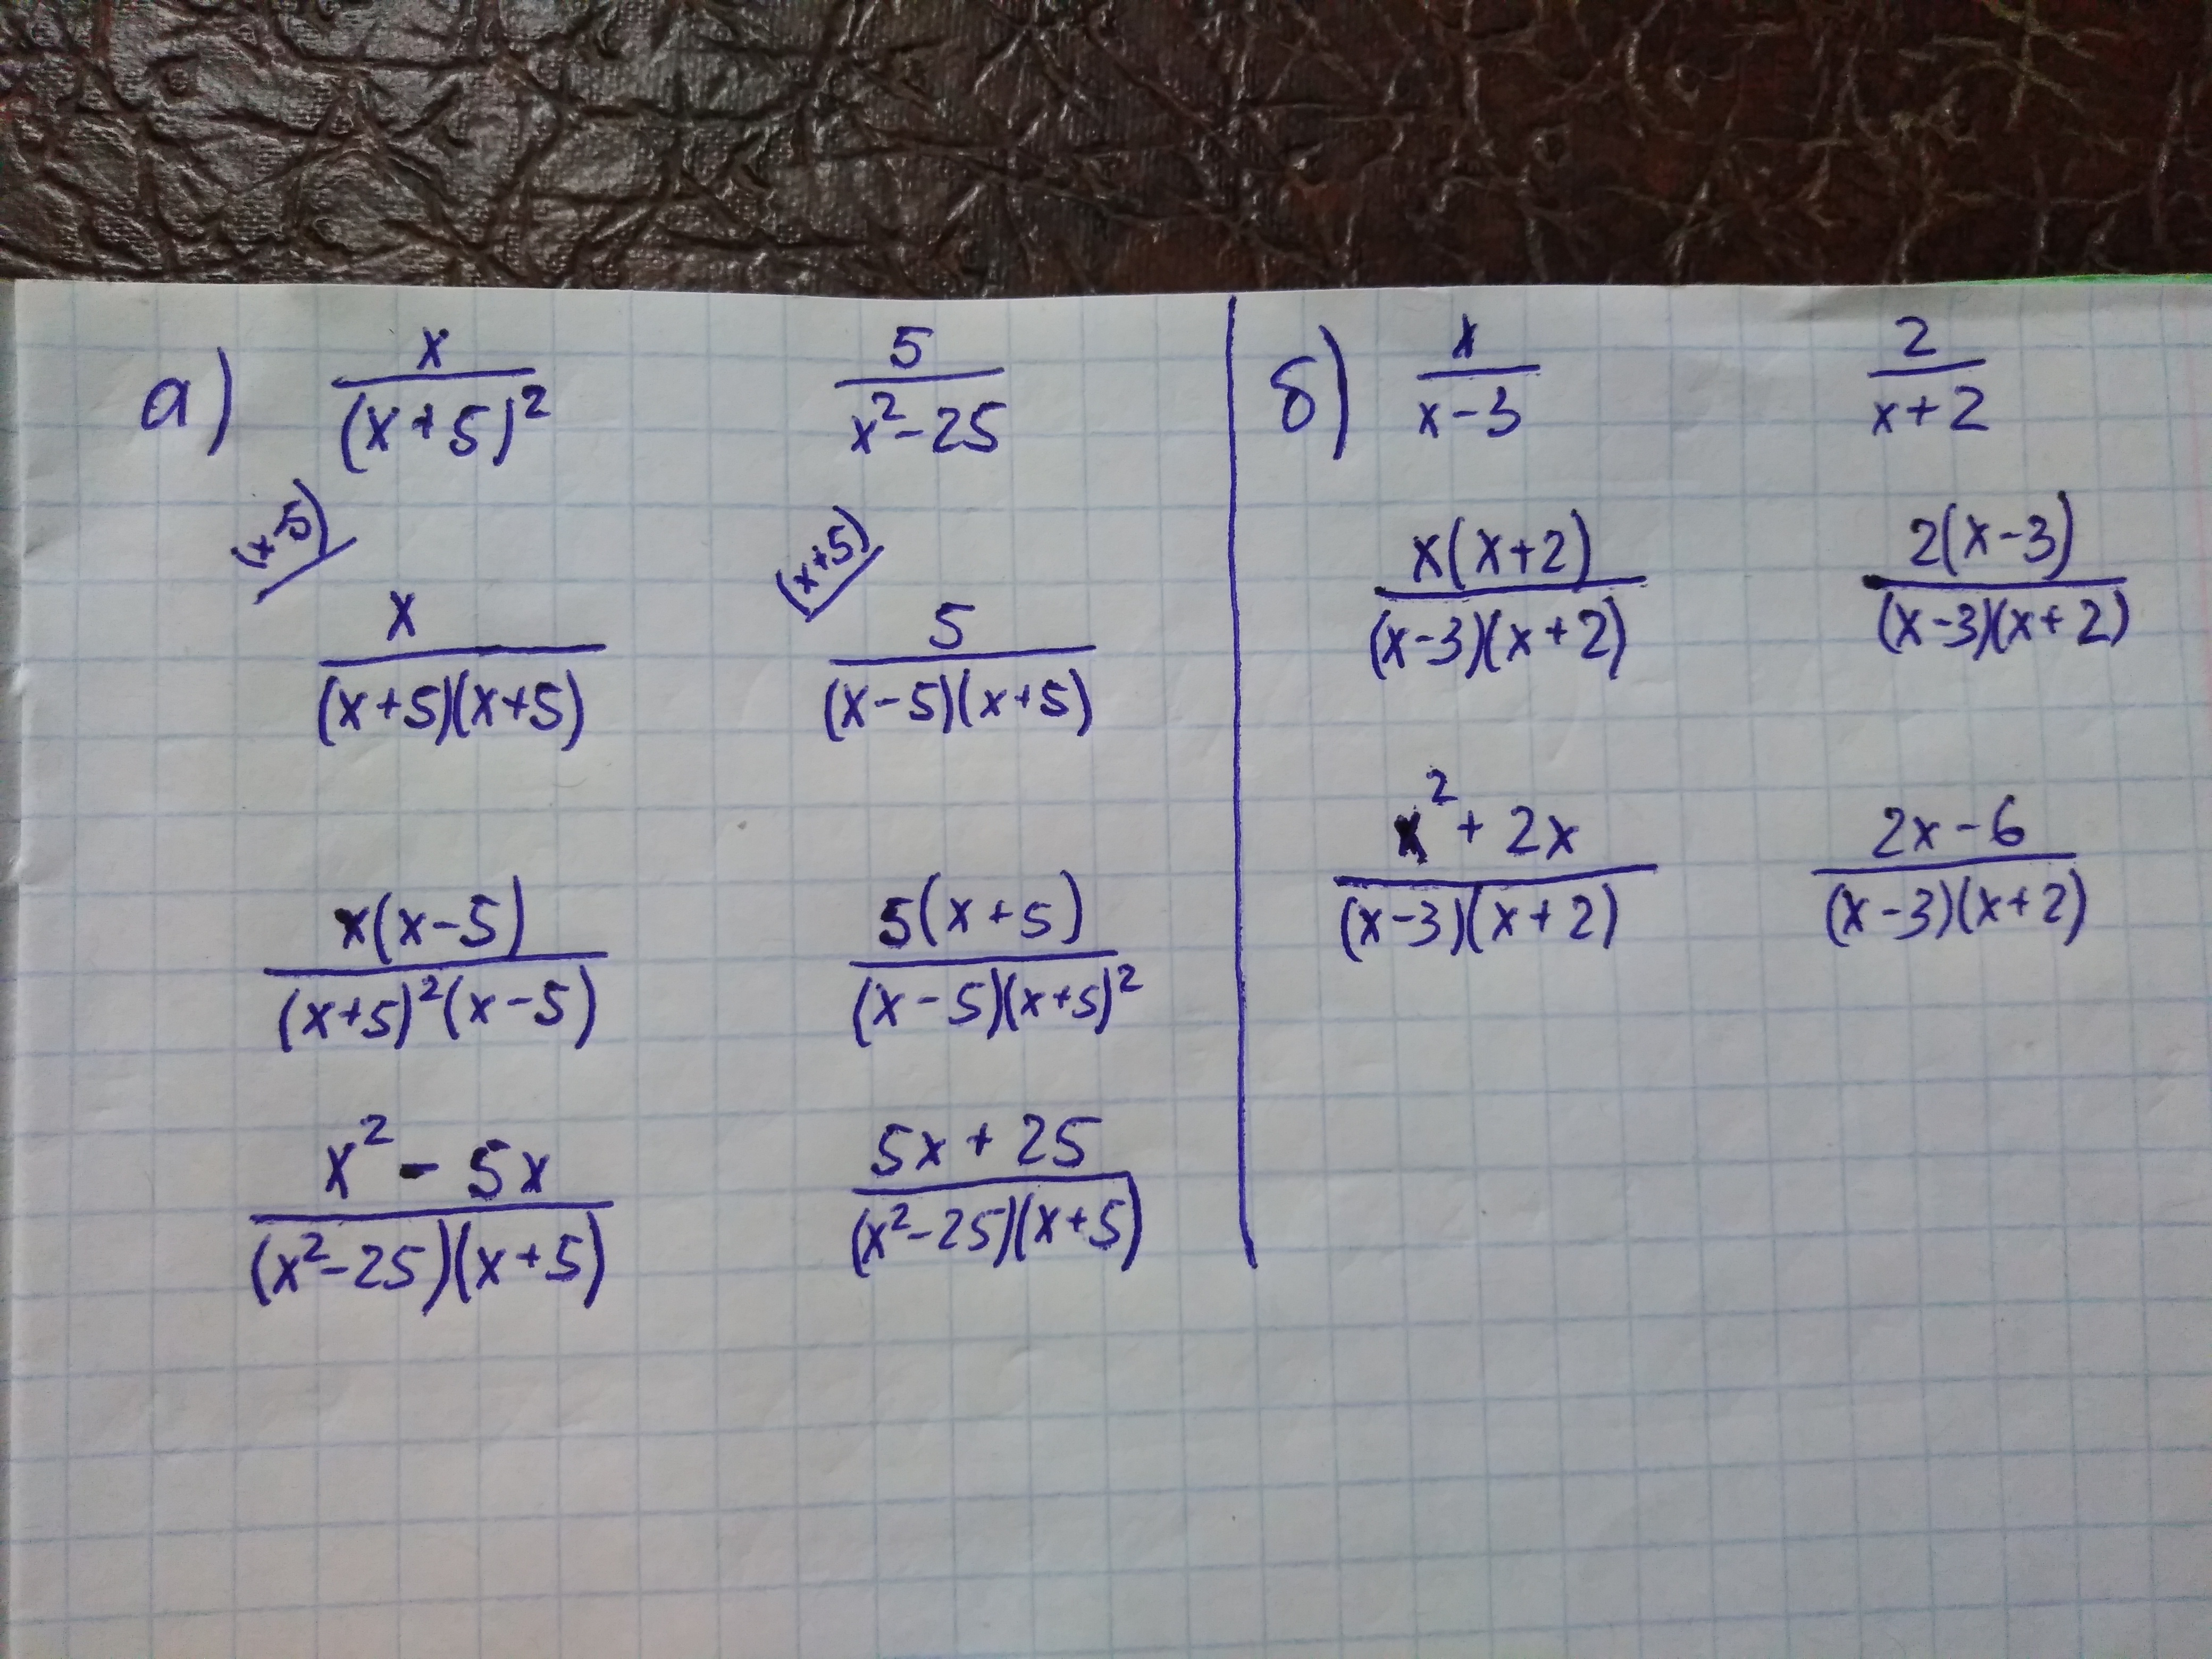 а) x/(x+5)² 5/(x²-25)
(x-5) x/((x+5)(x+5)) (x+5) 5/((x-5)(x+5))
x(x-5)/((x+5)²(x-5)) 5(x+5)/((x-5)(x+5)²)
(x²-5x)/((x²-25)(x+5)) (5x+25)/((x²-25)(x+5))
б) x/(x-3) 2/(x+2)
x(x+2)/((x-3)(x+2)) 2(x-3)/((x-3)(x+2))
(x²+2x)/((x-3)(x+2)) (2x-6)/((x-3)(x+2))